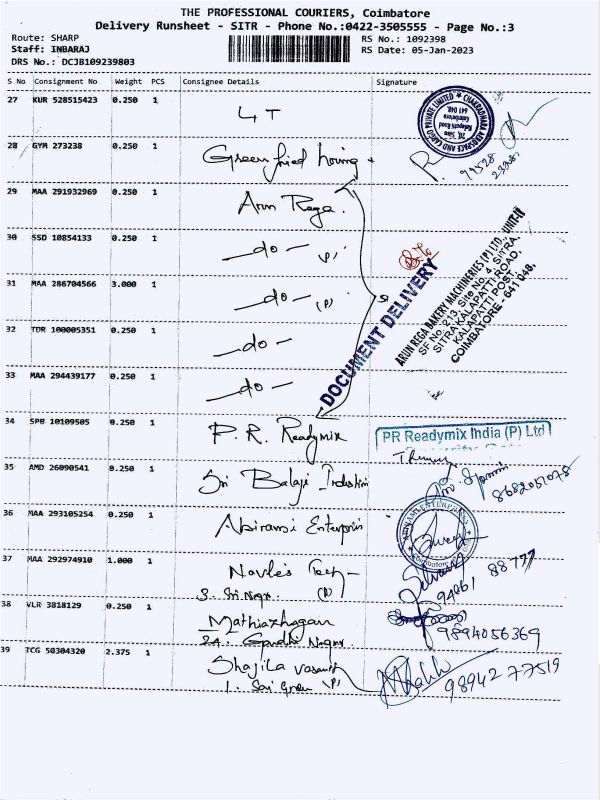 THE PROFESSIONAL COURIERS, Coimbatore
Delivery Runsheet - SITR - Phone No.:0422-3505555 - Page No.:3
Route: SHARP
RS No.: 1092398
Staff: INBARAJ
RS Date: 05-Jan-2023
DRS No.: DCJB109239803
S No Consignment No Weight PCS Consignee Details Signature
27 KUR 528515423 0.250 1 LT
CHAKRADHARA AEROSPACE AND CARGO PRIVATE LIMITED
28 GYM 273238 0.250 1 Green
29 MAA 291932969 0.250 1 Arun Rega.
30 SSD 10854133 0.250 1 -do- (P)
31 MAA 286704566 3.000 1 -do- (P)
32 TDR 100005351 0.250 1 -do-
33 MAA 294439177 0.250 1 -do-
DOCUMENT DELIVERY
ARUN REGA BAKERY MACHINERIES (P) LTD., UNIT-IV
SF No. 213, Site No. 4, SITRA,
SITRA KALAPATTI ROAD,
KALAPATTI POST,
COIMBATORE - 641 048.
34 SPB 10109505 0.250 1 P.R. Readymix
PR Readymix India (P) Ltd
35 AMD 26090541 0.250 1 Sri Balaji
8682051078
36 MAA 293105254 0.250 1 Abirami
37 MAA 292974910 1.000 1 (P)
88777
38 VLR 3818129 0.250 1 Mathiazhagan
24. Gandhi Nagar
9894056369
39 TCG 50304320 2.375 1 Shajila Vasanth
(P)
98942 77519